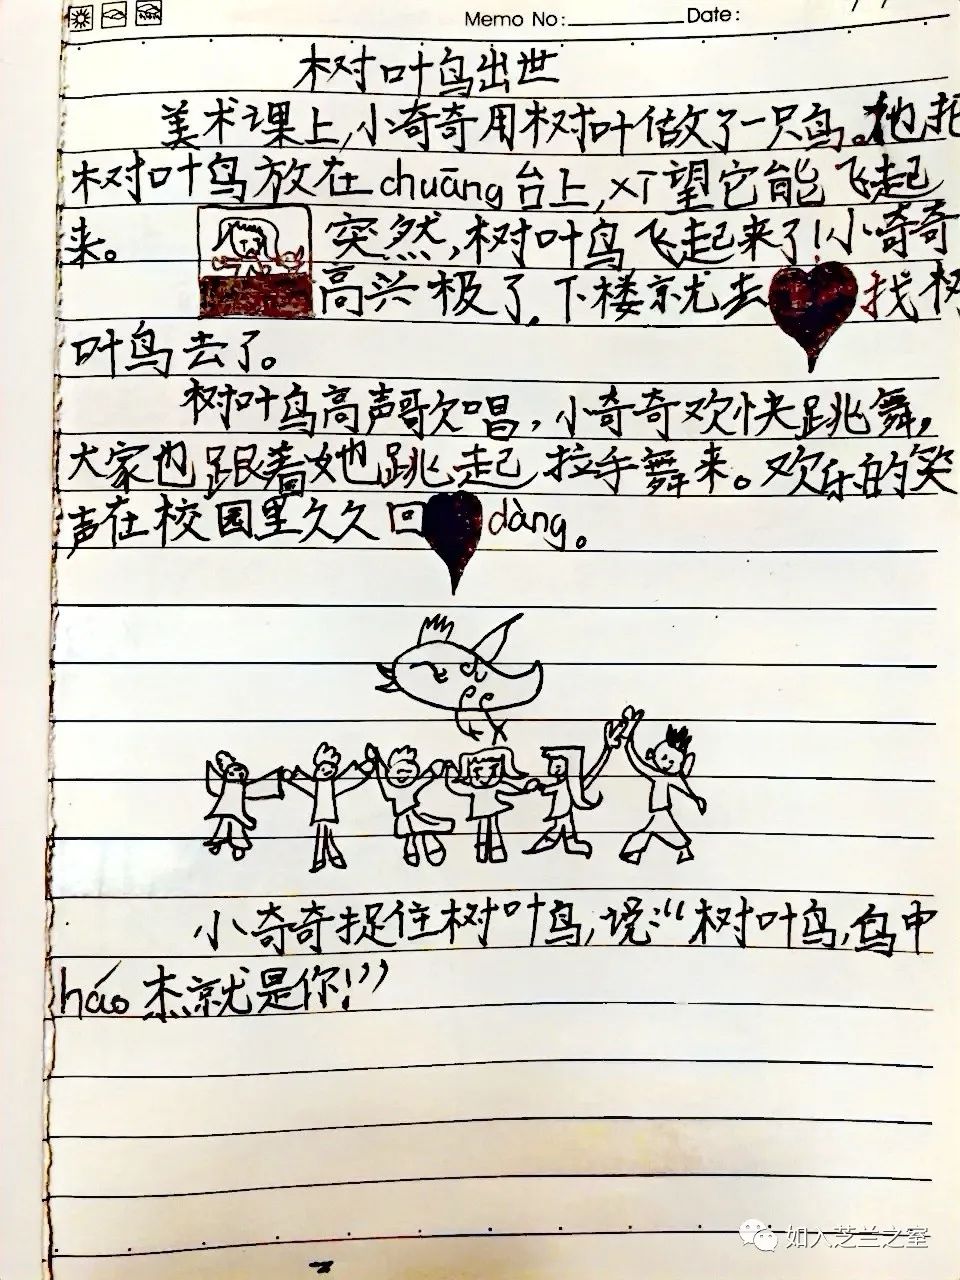 Memo No: Date:
树叶鸟出世
美术课上,小奇奇用树叶做了一只鸟。他把
树叶鸟放在chuāng台上,对望它能飞起
来。 突然,树叶鸟飞起来了!小奇奇
高兴极了,下楼就去 找树
叶鸟去了。
树叶鸟高声歌唱,小奇奇欢快跳舞,
大家也跟着她跳起拉手舞来。欢乐的笑
声在校园里久久回 dàng。
小奇奇捉住树叶鸟,说:“树叶鸟,鸟中
háo杰就是你!”
如入芝兰之室